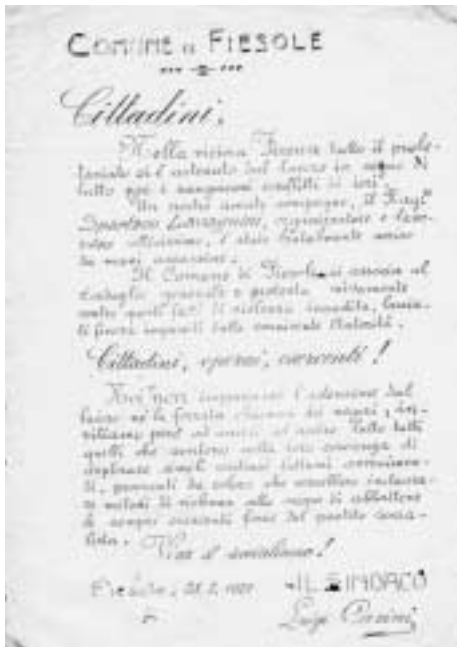 COMUNE DI FIESOLE
Cittadini,
Nella vicina Firenze tutto il prole-
tariato si è astenuto dal lavoro in segno di
lutto per i sanguinosi conflitti di ieri.
Un nostro amato compagno, il Rag.
Spartaco Lavagnini, organizzatore e
è stato brutalmente ucciso
da mani assassine.
Il Comune di Fiesole si associa al
cordoglio generale e protesta vivamente
contro questi fatti di violenza inaudita,
impuniti dalle Autorità.
Cittadini, operai, esercenti!
Noi non imponiamo l'astensione dal
lavoro nè la forzata chiusura dei negozi, in-
vitiamo però ad unirsi al nostro lutto tutti
quelli che sentono nella loro coscienza di
deplorare simili sistemi
da coloro che vorrebbero instaura-
re metodi di violenza allo scopo di abbattere
le sempre crescenti forze del partito socia-
lista.
Viva il socialismo!
Fiesole, 28.2.1921
IL SINDACO
Luigi Casini